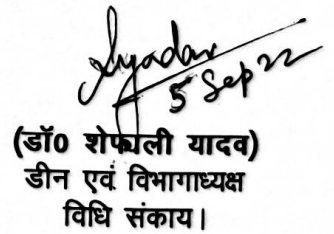 Syadav
5 Sep 22
(डॉ0 शेफाली यादव)
डीन एवं विभागाध्यक्ष
विधि संकाय।